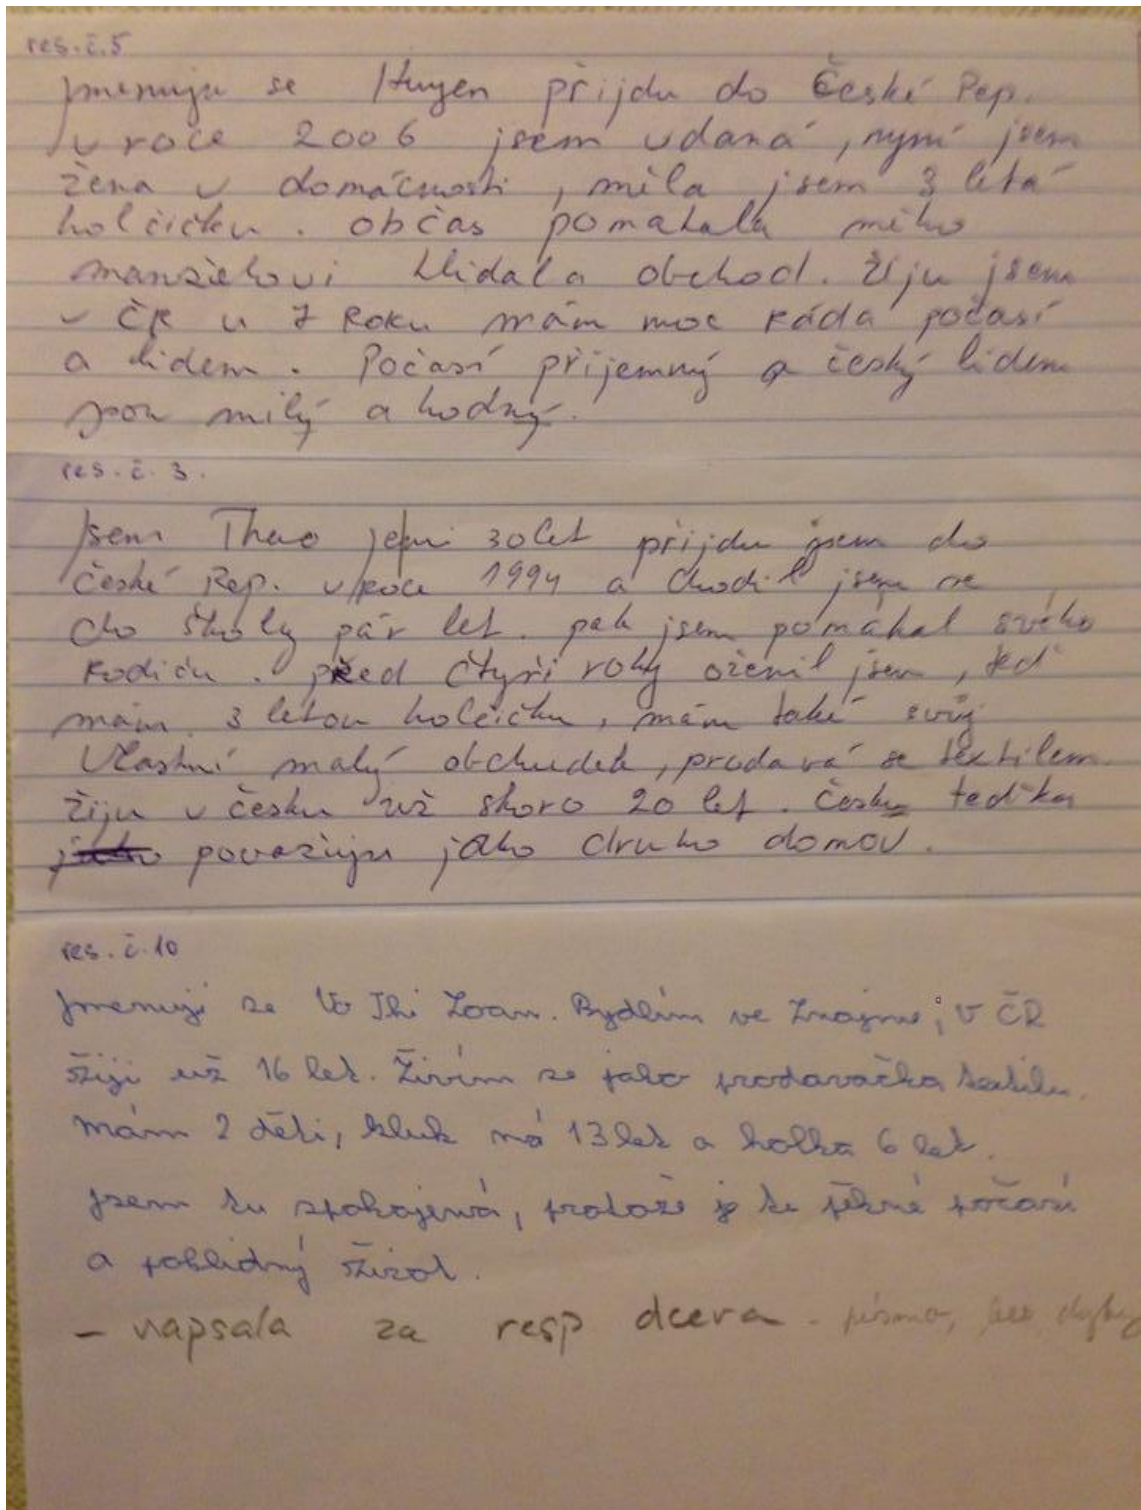 res. č. 5
Jmenuju se Huyen přijdu do České Rep.
v roce 2006 jsem vdaná, nyní jsem
žena v domácnosti, měla jsem 3 letá
holčičku. občas pomahala mého
manželovi hlídala obchod. žiju jsem
v ČR u 7 Roku mám moc ráda počasí
a lidem. Počasí příjemný a český lidem
jsou milý a hodný.
res. č. 3.
Jsem Thao je mi 30 let přijdu jsem do
České Rep. v roce 1994 a chodil jsem se
do školy pár let. pak jsem pomáhal svého
Rodiču. před čtyři roky oženil jsem, teď
mám 3 letou holčičku, mám také svůj
Vlastní malý obchudek, prodavá se textilem.
žiju v česku už skoro 20 let. Česku teďka
považuju jako druho domov.
res. č. 10
Jmenuji se Vo Thi Loan. Bydlím ve Znojmě, V ČR
žiji už 16 let. Živím se jako prodavačka textilu.
Mám 2 děti, kluk má 13 let a holka 6 let.
Jsem tu spokojená, protože je tu pěkné počasí
a poklidný život.
- napsala za resp dcera - písmo, bez